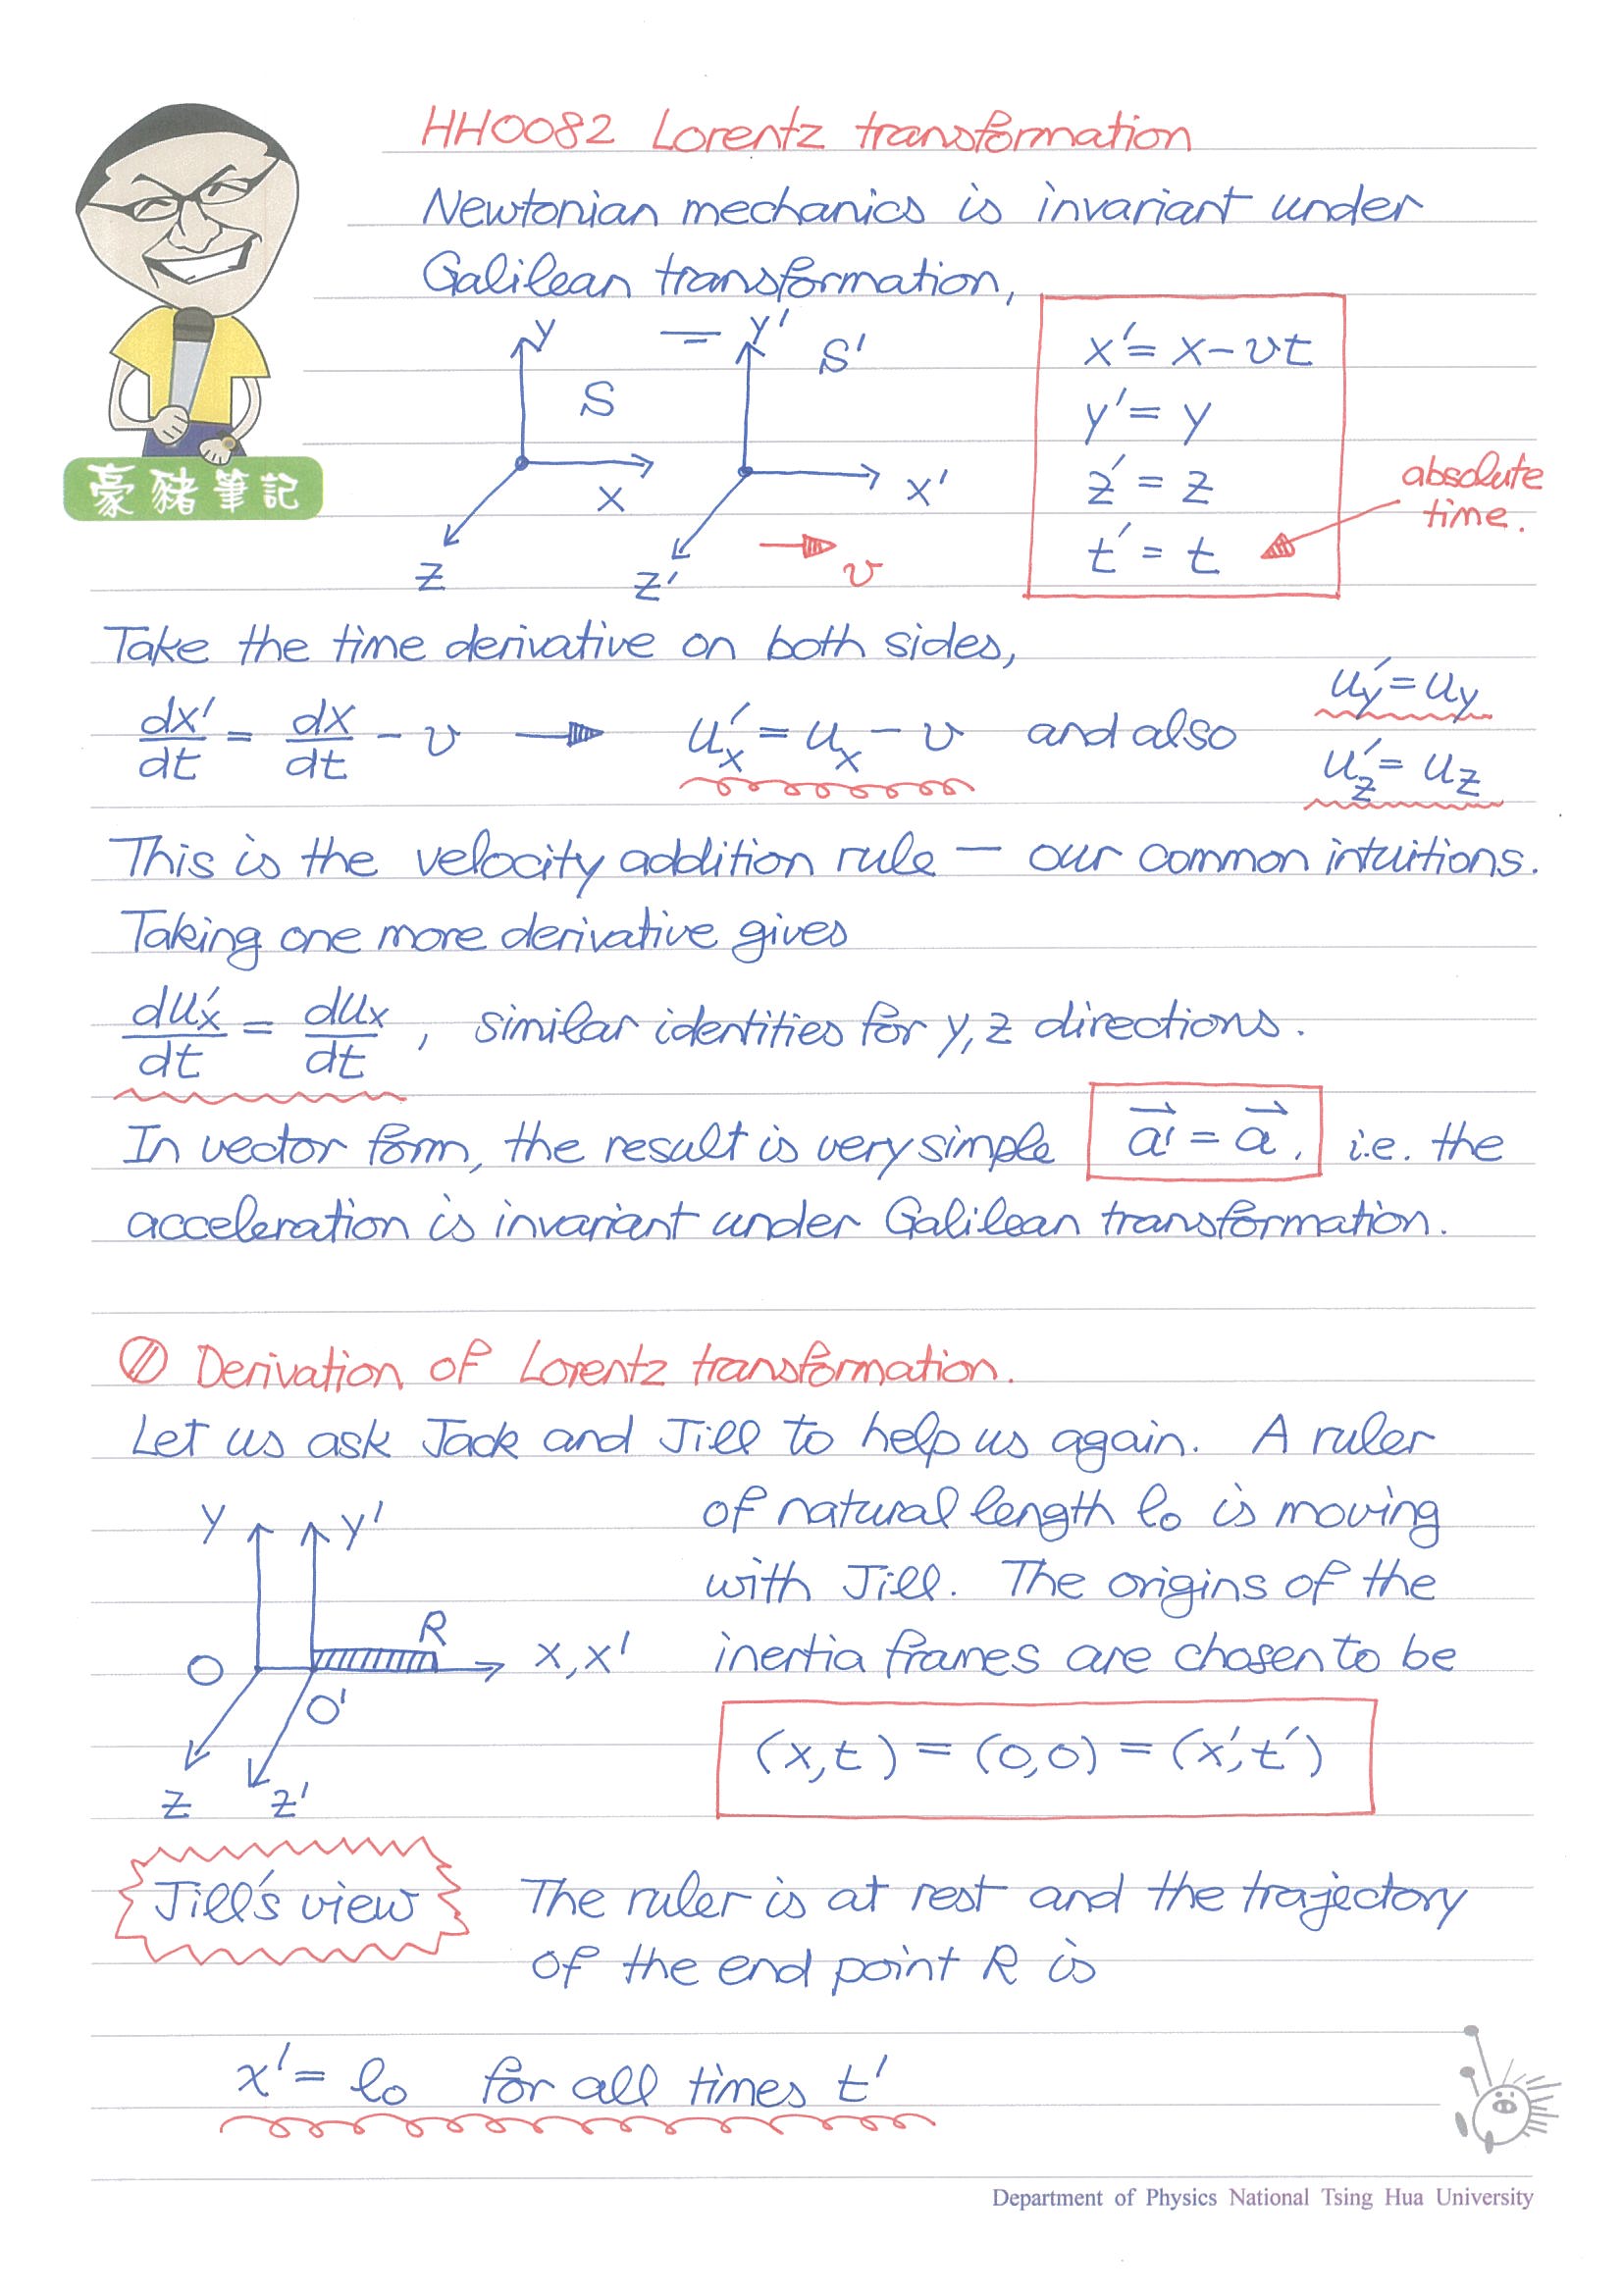 HH0082 Lorentz transformation
Newtonian mechanics is invariant under
Galilean transformation,
y
S
x
z
y'
S'
x'
z'
v
x' = x - vt
y' = y
z' = z
t' = t
absolute
time.
豪豬筆記
Take the time derivative on both sides,
dx'/dt = dx/dt - v → u'x = ux - v and also
u'y = uy
u'z = uz
This is the velocity addition rule — our common intuitions.
Taking one more derivative gives
du'x/dt = dux/dt , similar identities for y, z directions.
In vector form, the result is very simple a⃗' = a⃗ , i.e. the
acceleration is invariant under Galilean transformation.
Derivation of Lorentz transformation.
Let us ask Jack and Jill to help us again. A ruler
of natural length l₀ is moving
with Jill. The origins of the
inertia frames are chosen to be
(x,t) = (0,0) = (x',t')
y
y'
R
O
x, x'
O'
z
z'
Jill's view
The ruler is at rest and the trajectory
of the end point R is
x' = l₀ for all times t'
Department of Physics National Tsing Hua University